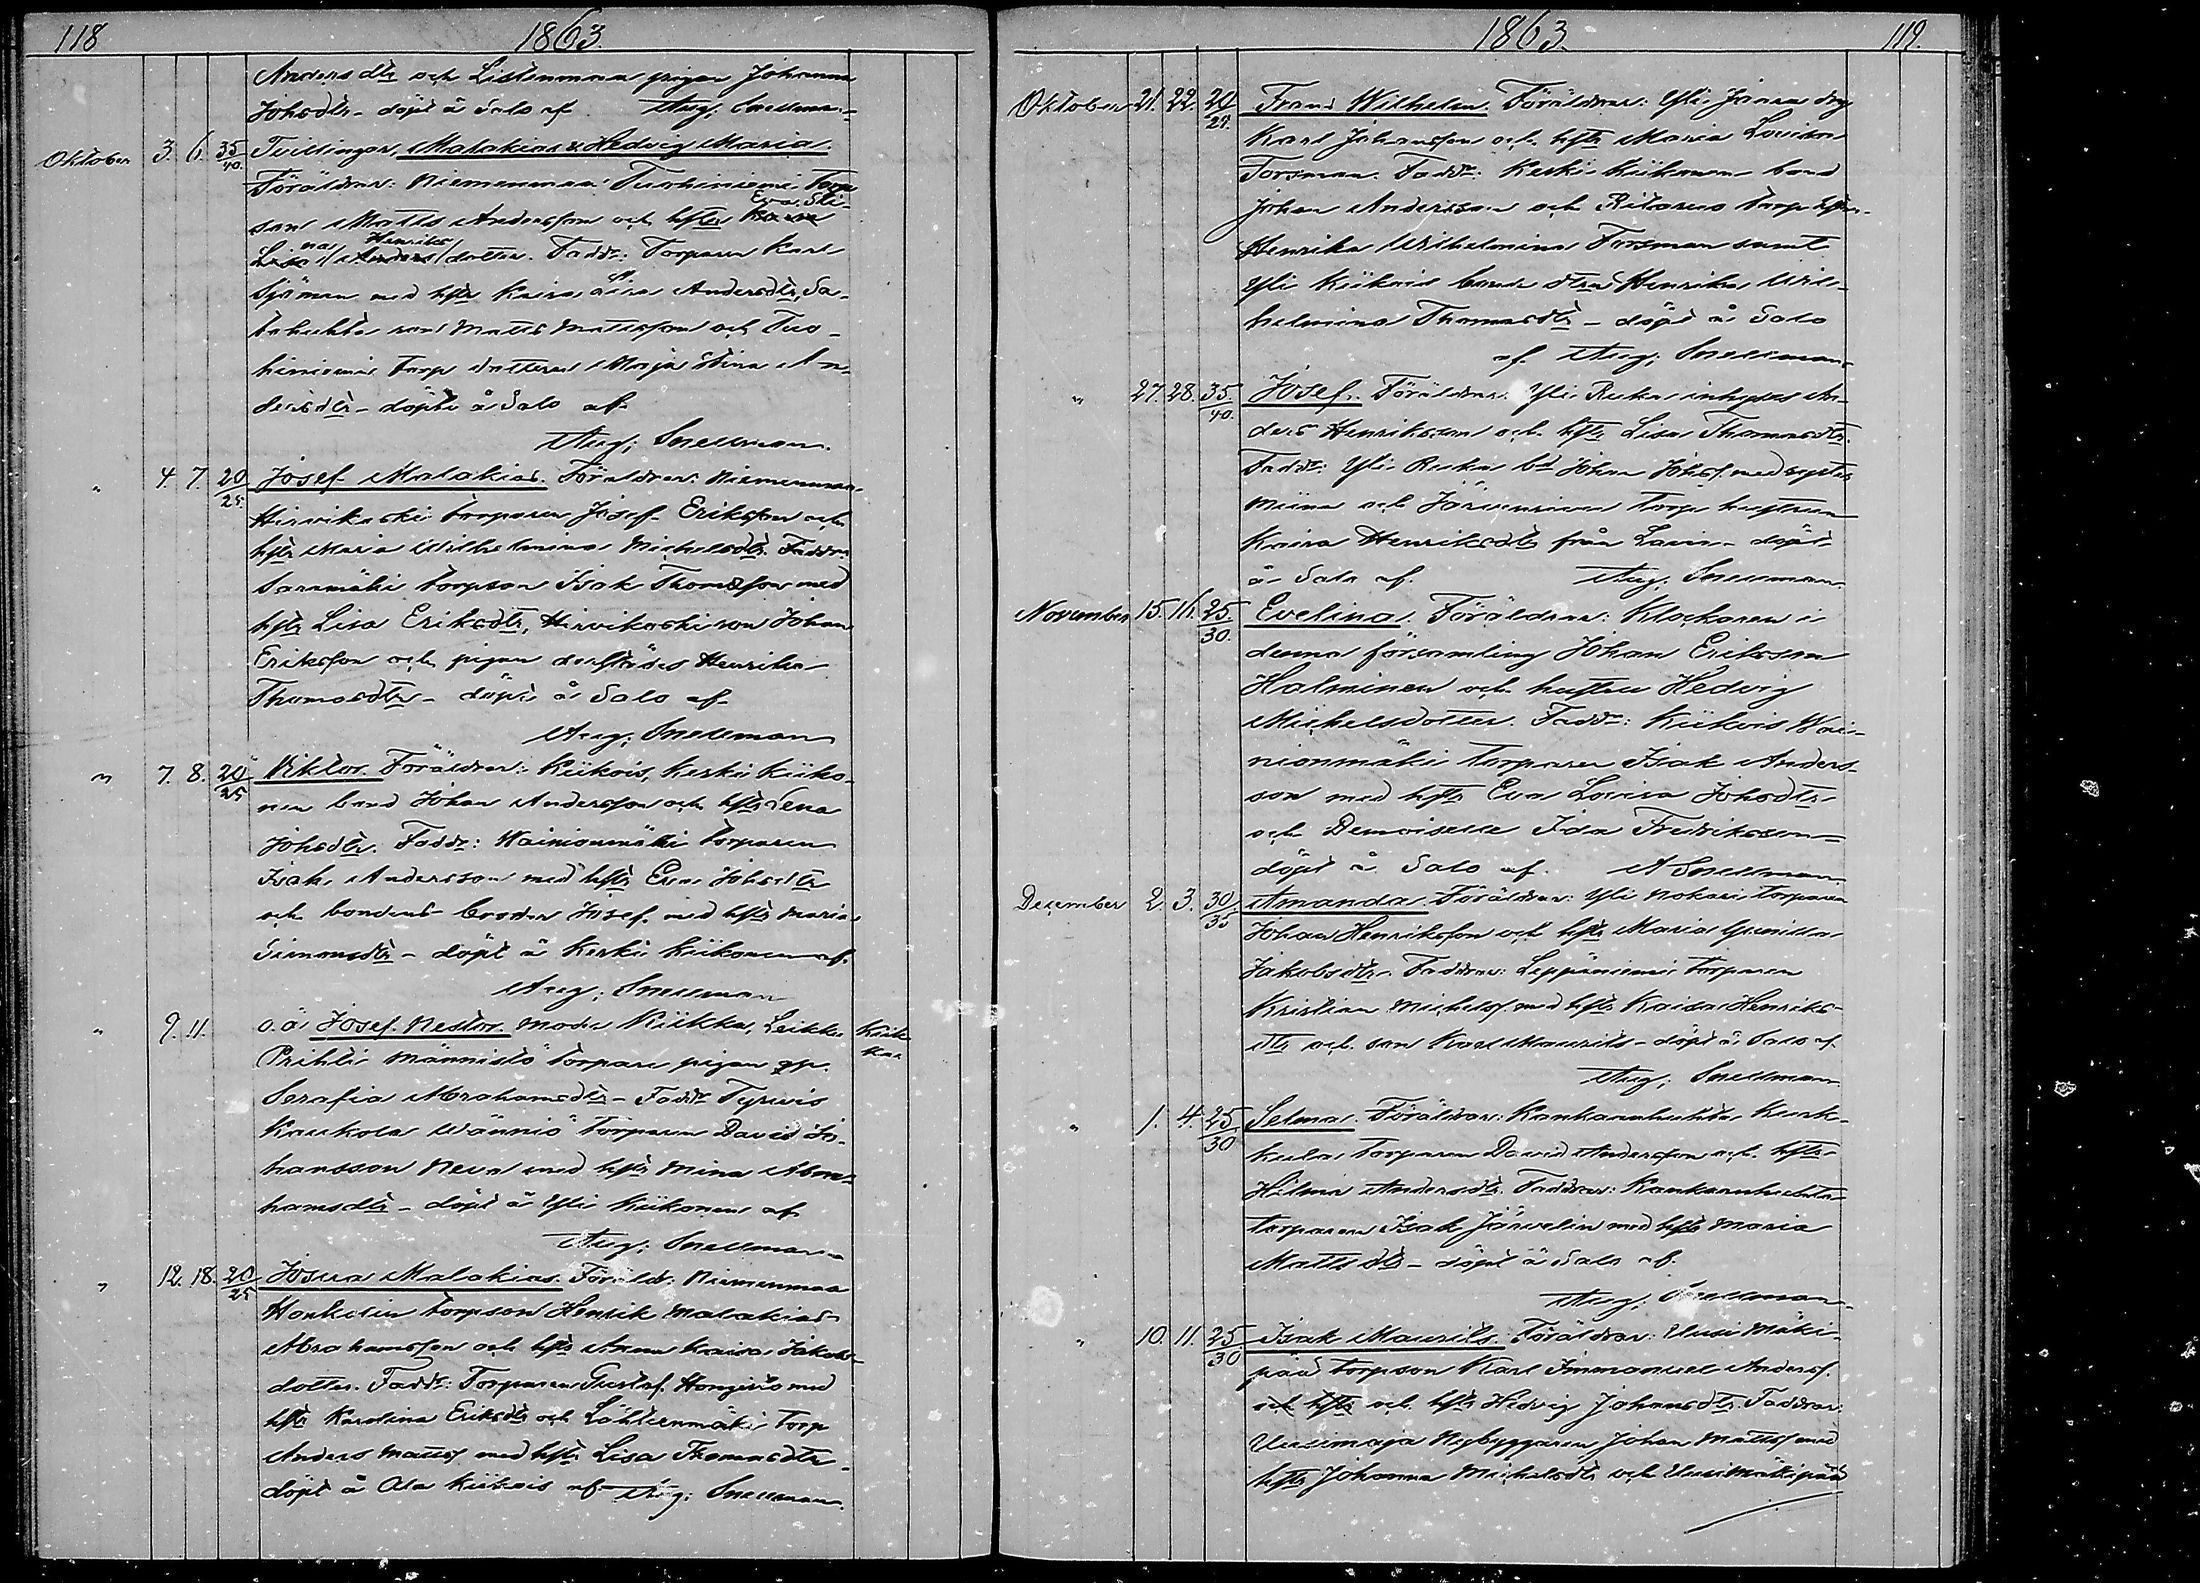 118
1863.
Anders dtr och Listenmaa pigan Johanna
Johsdtr - döpt å Salo af Aug; Snellman
Oktober 3. 6. 35/40. Tvillingar, Malakias & Hedvig Maria.
Föräldrar: Niemenmaa Turhiniemi Torp
Eva Sti-
son Matts Andersson och hstr Kaisa
na Henriks
Lisa Anders dotter. Faddr: Torparen Karl
Sjöman med hstr Kaisa Lisa Andersdtr, Sa-
takulta son Matts Mattsson och Tuo-
hiniemi torp dottren Maja Stina An-
dersdtr - döpte å Salo af
Aug; Snellman.
" 4. 7. 20/25. Josef Malakias. Föräldrar: Niemenmaa
Hirvikoski torparen Josef Eriksson och
hstr Maria Wilhelmina Michelsdtr Faddrar
Saramäki torpson Isak Thomasson med
hstr Lisa Eriksdtr, Hirvikoski son Johan
Eriksson och pigan derstädes Henrika
Thomasdtr - döpt å Salo af
Aug; Snellman
" 7. 8. 20/25 Viktor. Föräldrar: Kiikois, Keski Kiiko-
nen bond Johan Andersson och hstr Lena
Johsdtr. Faddr: Wainionmäki torparen
Isak Andersson med hstr Eva Johsdtr
och bondens broder Josef med hstr Maria
Simonsdtr - döpt å Keski Kiikonen af
Aug; Snellman
" 9. 11. o.ä. Josef Nestor. Moder Kiikka, Leikku Kiik-
Prihti Männistö torpare pigan ka.
Serafia Abrahamsdtr - Faddr Tyrvis
Kaukola Wännio torparen David Jo-
hansson Neva med hstr Mina Abra-
hamsdtr - döpt å Yli Kiikonen af
Aug; Snellman
" 12. 18. 20/25 Josua Malakias. Föräldr: Niemenmaa
Honkelin torpson Henrik Malakias
Abrahamsson och hstr Anna Kaisa Jakobs-
dotter. Faddr: Torparen Gustaf Hongisto med
hstr Karolina Eriksdtr och Lähteenmäki Torp
Anders Mattss med hstr Lisa Thomasdtr
döpt å Ala Kiikois af Aug; Snellman.
1863.
119.
Oktober 21. 22. 24/27. Frans Wilhelm. Föräldrar: Yli Jaara drg
Karl Johansson och hstr Maria Lovisa
Forsman. Faddr: Keski Kiikonen bond
Johan Andersson och Ritarus torp hstr
Henrika Wilhelmina Forsman samt
Yli Kiikois bonde dtra Henrika Wil-
helmina Thomasdtr - döpt å Salo
af Aug; Snellman
" 27. 28. 35/40. Josef. Föräldrar Yli Ruka inhyses An-
ders Henriksson och hstr Lisa Thomasdtr
Faddr: Yli Ruka bd Johan Johss. med syster
Miina och torp hustrun
Kaisa Henriksdtr från Lavia - döpt
å Salo af. Aug; Snellman
November 15. 16. 25/30. Evelina. Föräldrar: Klockaren i
denna församling Johan Eriksson
Halminen och hustru Hedvig
Michelsdotter. Faddr: Kiikois Wai-
nionmäki torparen Isak Anders-
son med hstr Eva Lovisa Johsdtr
och Demoiselle Ida Fredriksson
döpt å Salo af. A Snellman
December 2. 3. 30/35 Amanda. Föräldrar: Yli Nokari Torparen
Johan Henriksson och hstr Maria Gunilla
Jakobsdtr. Faddrar: Leppäniemi Torparen
Kristian Michelss. med hstr Kaisa Henriks-
dtr och son Karl Maurits - döpt å Salo af.
Aug; Snellman
" 1. 4. 25/30 Selma. Föräldrar: Kankaanhuhta Kurk-
kula torparen David Andersson och hstr
Hilma Andersdtr. Faddrar: Kankaanhuhta
torparen Isak Järvelin med hstr Maria
Mattsdtr - döpt å Salo af.
Aug; Snellman
" 10. 11. 25/30 Isak Maurits. Föräldrar: Uusi Mäki-
pää torpson Karl Immanuel Anderss.
och hstr och hstr Hedvig Johansdtr. Faddrar
Uusimaja Nybyggaren Johan Mattss med
hstr Johanna Michelsdtr och Uusimäkipää